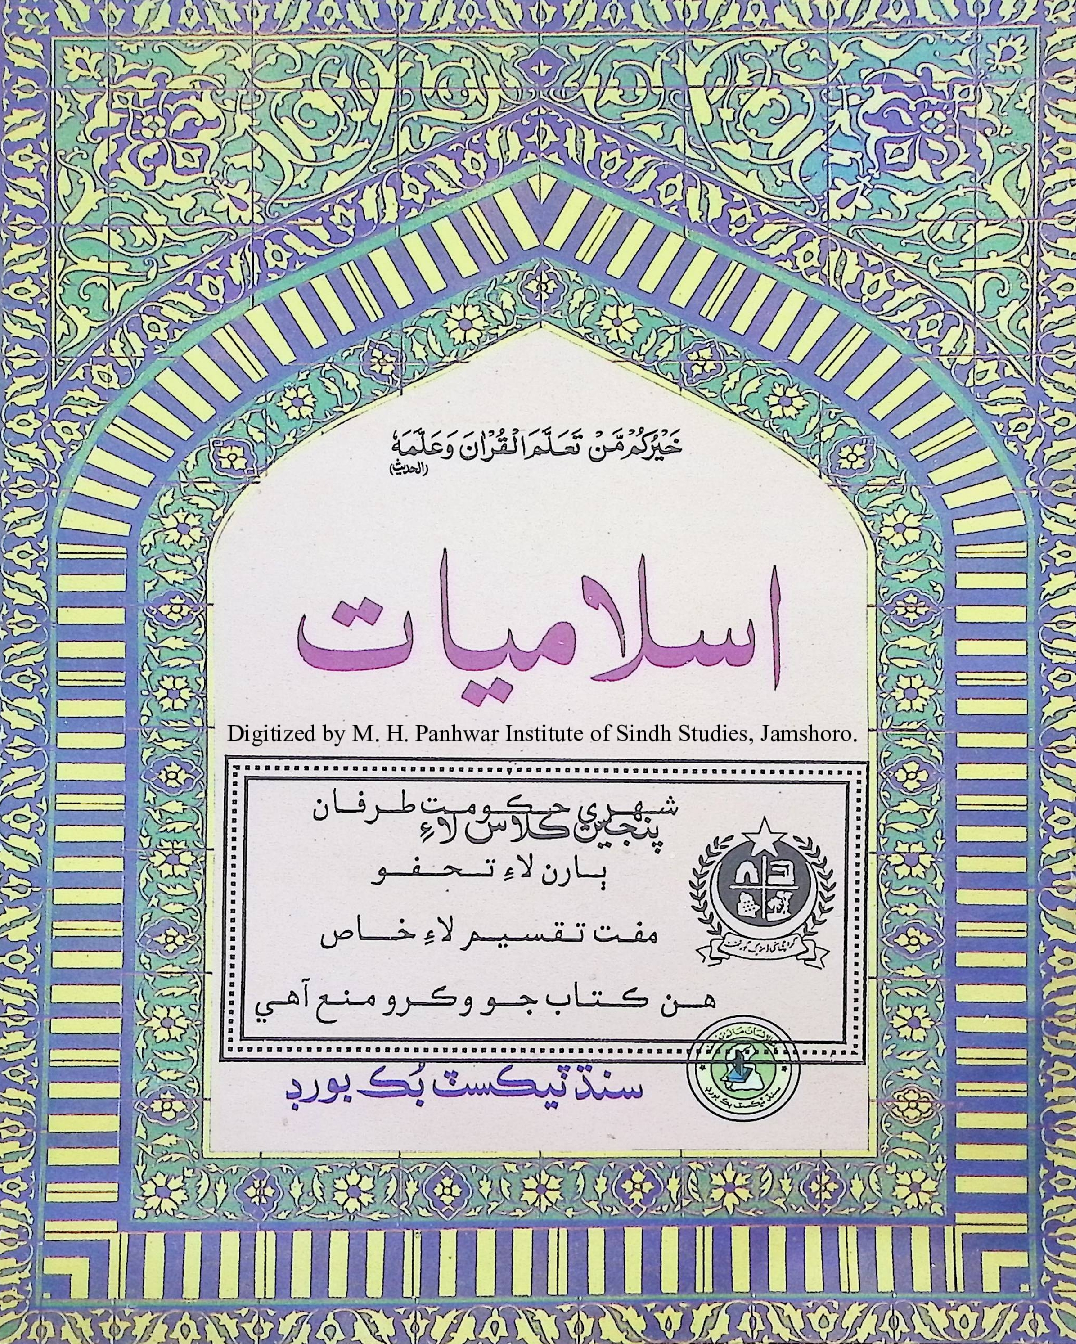 خَيْرُكُمْ مَّنْ تَعَلَّمَ الْقُرْاٰنَ وَعَلَّمَهٗ
(الحديث)
اسلاميات
Digitized by M. H. Panhwar Institute of Sindh Studies, Jamshoro.
شهري حڪومت طرفان
پنجين ڪلاس لاءِ
ٻارن لاءِ تحفو
مفت تقسيم لاءِ خاص
هن ڪتاب جو وڪرو منع آهي
سنڌ ٽيڪسٽ بُڪ بورڊ
سنڌ ٽيڪسٽ بڪ بورڊ